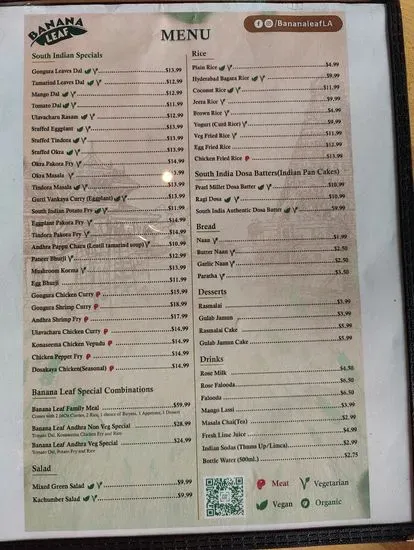 BANANA
LEAF
MENU
/BananaleafLA
South Indian Specials
Gongura Leaves Dal $13.99
Tamariud Leaves Dal $12.99
Mango Dal $12.99
Tomato Dal $11.99
Ulavacharu Rasam $12.99
Stuffed Eggplant $13.99
Stuffed Tindora $13.99
Stuffed Okra $13.99
Okra Pakora Fry $14.99
Okra Masala $13.99
Tindora Masala $13.99
Gutti Vankaya Curry (Eggplant) $13.99
South Indian Potato Fry $11.99
Eggplant Pakora Fry $14.99
Tindora Pakora Fry $14.99
Andhra Pappu Charu (Lentil tamarind soup) $10.99
Paneer Bhurji $12.99
Mushroom Korma $13.99
Egg Bhurji $11.99
Gongura Chicken Curry $15.99
Gongura Shrimp Curry $18.99
Andhra Shrimp Fry $17.99
Ulavacharu Chicken Curry $14.99
Konaseema Chicken Vepudu $14.99
Chicken Pepper Fry $14.99
Dosakaya Chicken(Seasonal) $14.99
Banana Leaf Special Combinations
Banana Leaf Family Meal $59.99
Banana Leaf Andhra Non Veg Special $28.99
Tomato Dal, Konaseema Chicken Fry and Rice
Banana Leaf Andhra Veg Special $24.99
Tomato Dal, Potato Fry and Rice
Salad
Mixed Green Salad $9.99
Kachumber Salad $9.99
Rice
Plain Rice $4.99
Hyderabad Bagara Rice $9.99
Coconut Rice $11.99
Jeera Rice $9.99
Brown Rice $4.99
Yogurt (Curd Rice) $9.99
Veg Fried Rice $11.99
Egg Fried Rice $12.99
Chicken Fried Rice $13.99
South India Dosa Batters(Indian Pan Cakes)
Pearl Millet Dosa Batter $10.99
Ragi Dosa $10.99
South India Authentic Dosa Batter $9.99
Bread
Naan $1.99
Butter Naan $2.50
Garlic Naan $2.50
Paratha $3.50
Desserts
Rasmalai $3.99
Gulab Jamun $3.99
Rasmalai Cake $5.99
Gulab Jamun Cake $5.99
Drinks
Rose Milk $4.50
Rose Falooda $6.50
Falooda $6.50
Mango Lassi $3.99
Masala Chai(Tea) $2.99
Fresh Lime Juice $4.99
Indian Sodas (Thums Up/Limca) $2.99
Bottle Water (500ml.) $2.75
Meat
Vegetarian
Vegan
Organic